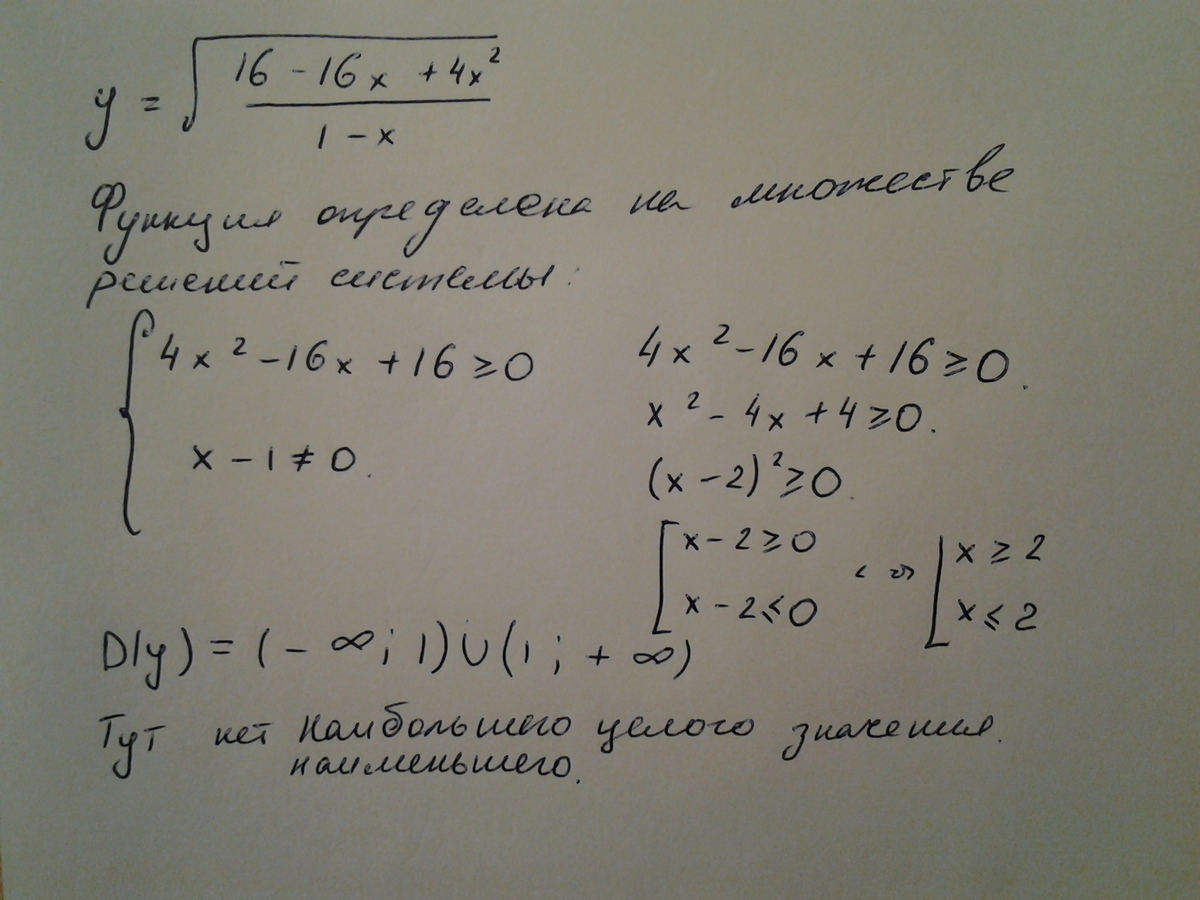 y = √((16 - 16x + 4x²)/(1 - x))
Функция определена на множестве
решений системы:
{ 4x² - 16x + 16 ≥ 0
x - 1 ≠ 0.
4x² - 16x + 16 ≥ 0.
x² - 4x + 4 ≥ 0.
(x - 2)² ≥ 0.
[ x - 2 ≥ 0 <=> [ x ≥ 2
x - 2 ≤ 0 x ≤ 2
D(y) = (-∞; 1)∪(1; +∞)
Тут нет наибольшего целого значения.
наименьшего.